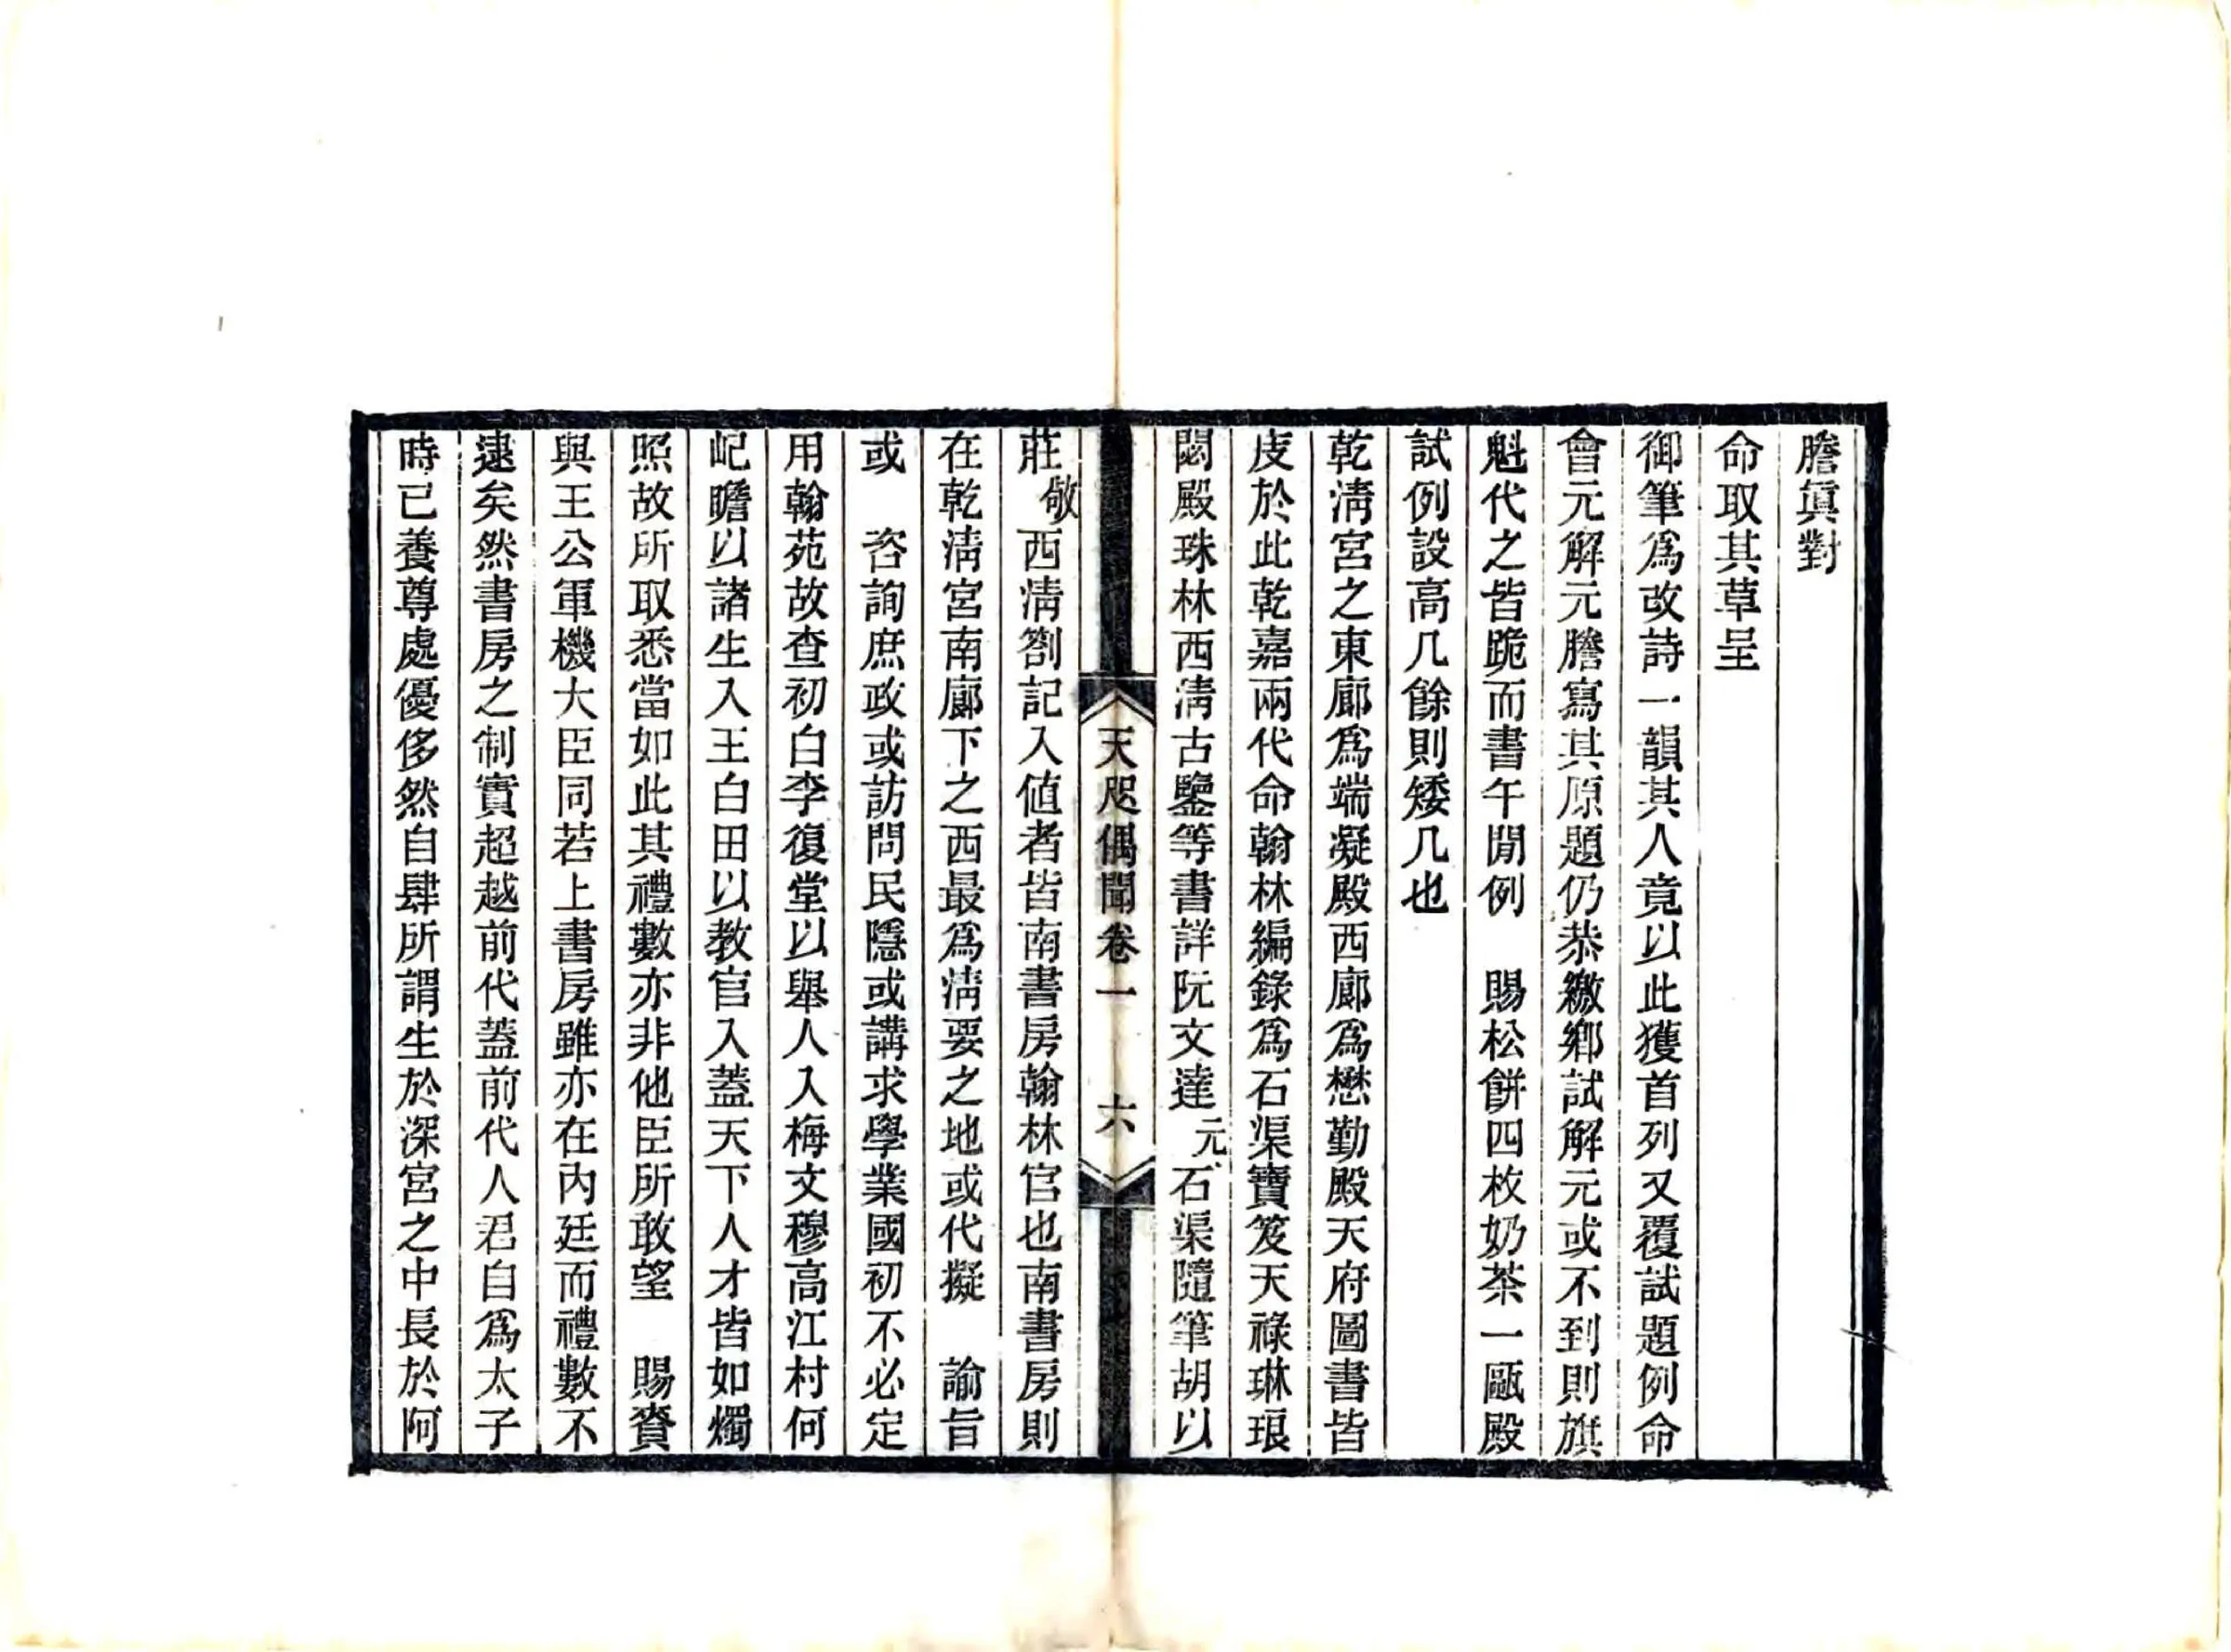 謄眞對
命取其草呈
御筆爲改詩一韻其人竟以此獲首列又覆試題例命
會元解元謄寫其原題仍恭繳鄕試解元或不到則旗
魁代之皆跪而書午閒例　賜松餅四枚奶茶一甌殿
試例設高几餘則矮几也
乾淸宮之東廊爲端凝殿西廊爲懋勤殿天府圖書皆
庋於此乾嘉兩代命翰林編錄爲石渠寶笈天祿琳琅
閟殿珠林西淸古鑒等書詳阮文達元石渠隨筆胡以
天咫偶聞卷一　六
莊敬西淸劄記入値者皆南書房翰林官也南書房則
在乾淸宮南廊下之西最爲淸要之地或代擬　諭旨
或　咨詢庶政或訪問民隱或講求學業國初不必定
用翰苑故查初白李復堂以舉人入梅文穆高江村何
屺瞻以諸生入王白田以教官入蓋天下人才皆如燭
照故所取悉當如此其禮數亦非他臣所敢望　賜賚
與王公軍機大臣同若上書房雖亦在內廷而禮數不
逮矣然書房之制實超越前代蓋前代人君自爲太子
時已養尊處優侈然自肆所謂生於深宮之中長於阿